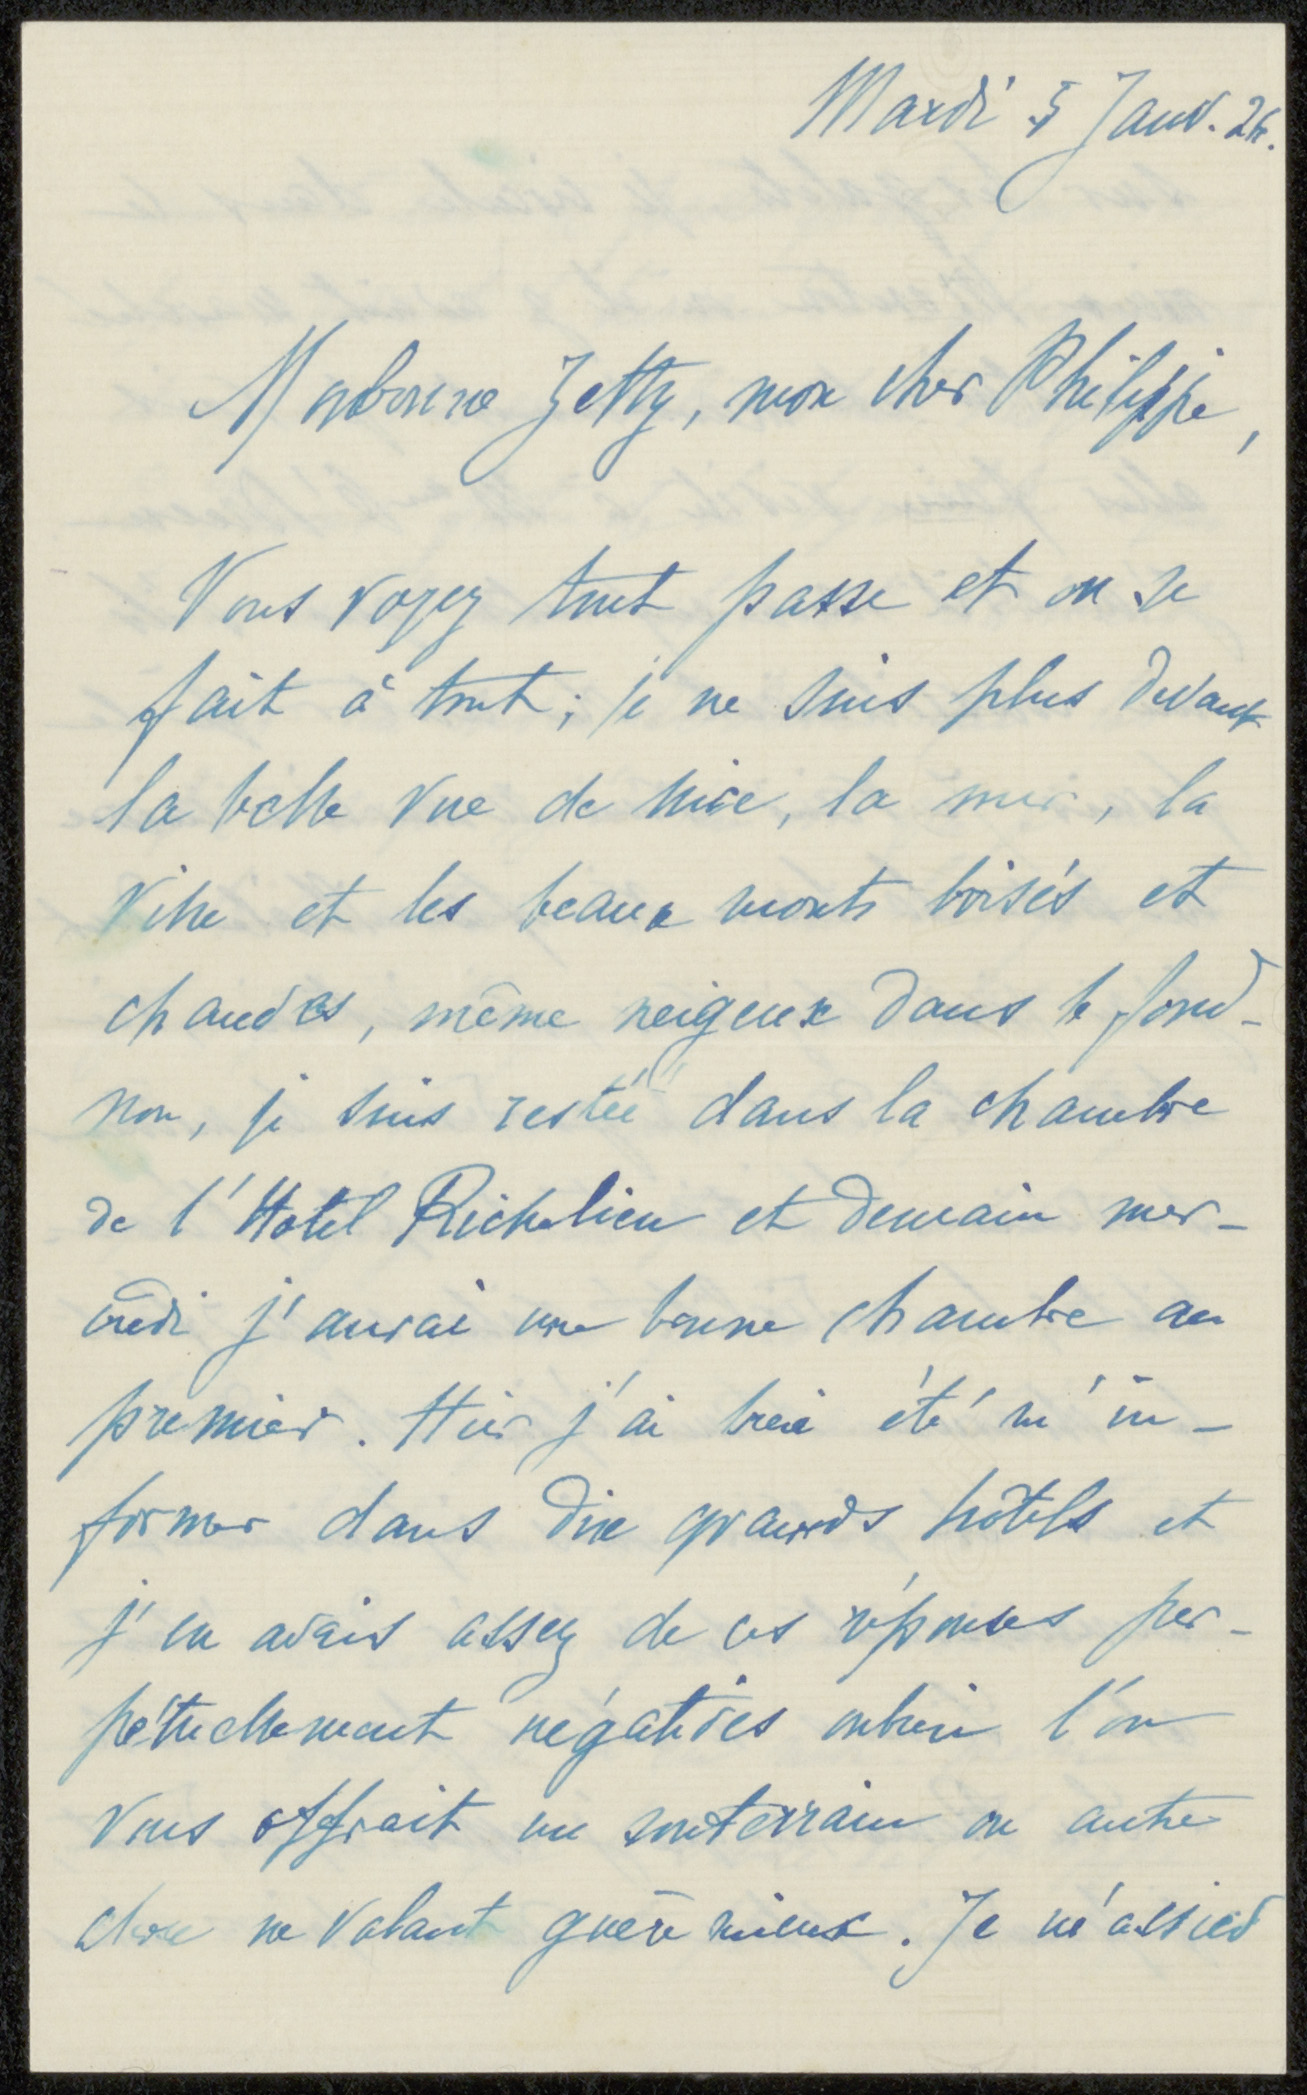 Mardi 5 Janv. 26.
Ma bonne Zetty, mon cher Philippe,
Vous voyez tout passe et on se
fait à tout; je ne suis plus devant
la belle vue de Nice, la mer, la
ville et les beaux monts boisés et
chauds, même neigeux dans le fond -
non, je suis restée dans la chambre
de l'Hotel Richelieu et demain mer-
credi j'aurai une bonne chambre au
premier. Hier j'ai bien été m'in-
former dans dix grands hôtels et
j'en avais assez de ces réponses per-
pétuellement négatives oubien l'on
vous offrait un souterrain ou autre
chose ne valant guère mieux. Je m'assied